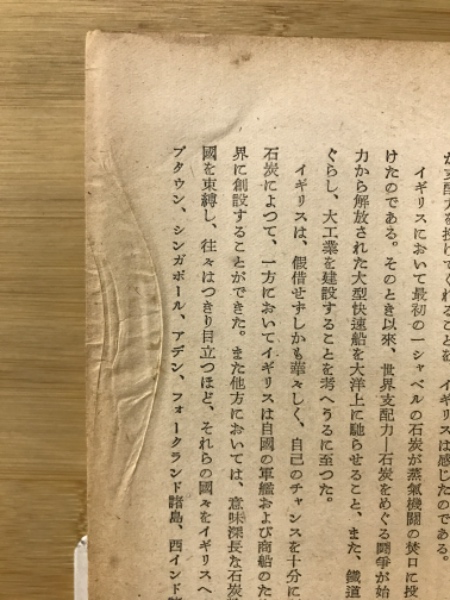 が支配力を授けてくれることを、イギリスは感じたのである。
イギリスにおいて最初の一シャベルの石炭が蒸氣機關の焚口に投
けたのである。そのとき以來、世界支配力―石炭をめぐる鬪爭が始
力から解放された大型快速船を大洋上に馳らせること、また、鐵道
ぐらし、大工業を建設することを考へうるに至つた。
イギリスは、假借せずしかも華々しく、自己のチャンスを十分に
石炭によつて、一方においてイギリスは自國の軍艦および商船のた
界に創設することができた。また他方においては、意味深長な石炭
國を束縛し、往々はつきり目立つほど、それらの國々をイギリスへ
プタウン、シンガポール、アデン、フォークランド諸島、西インド諸